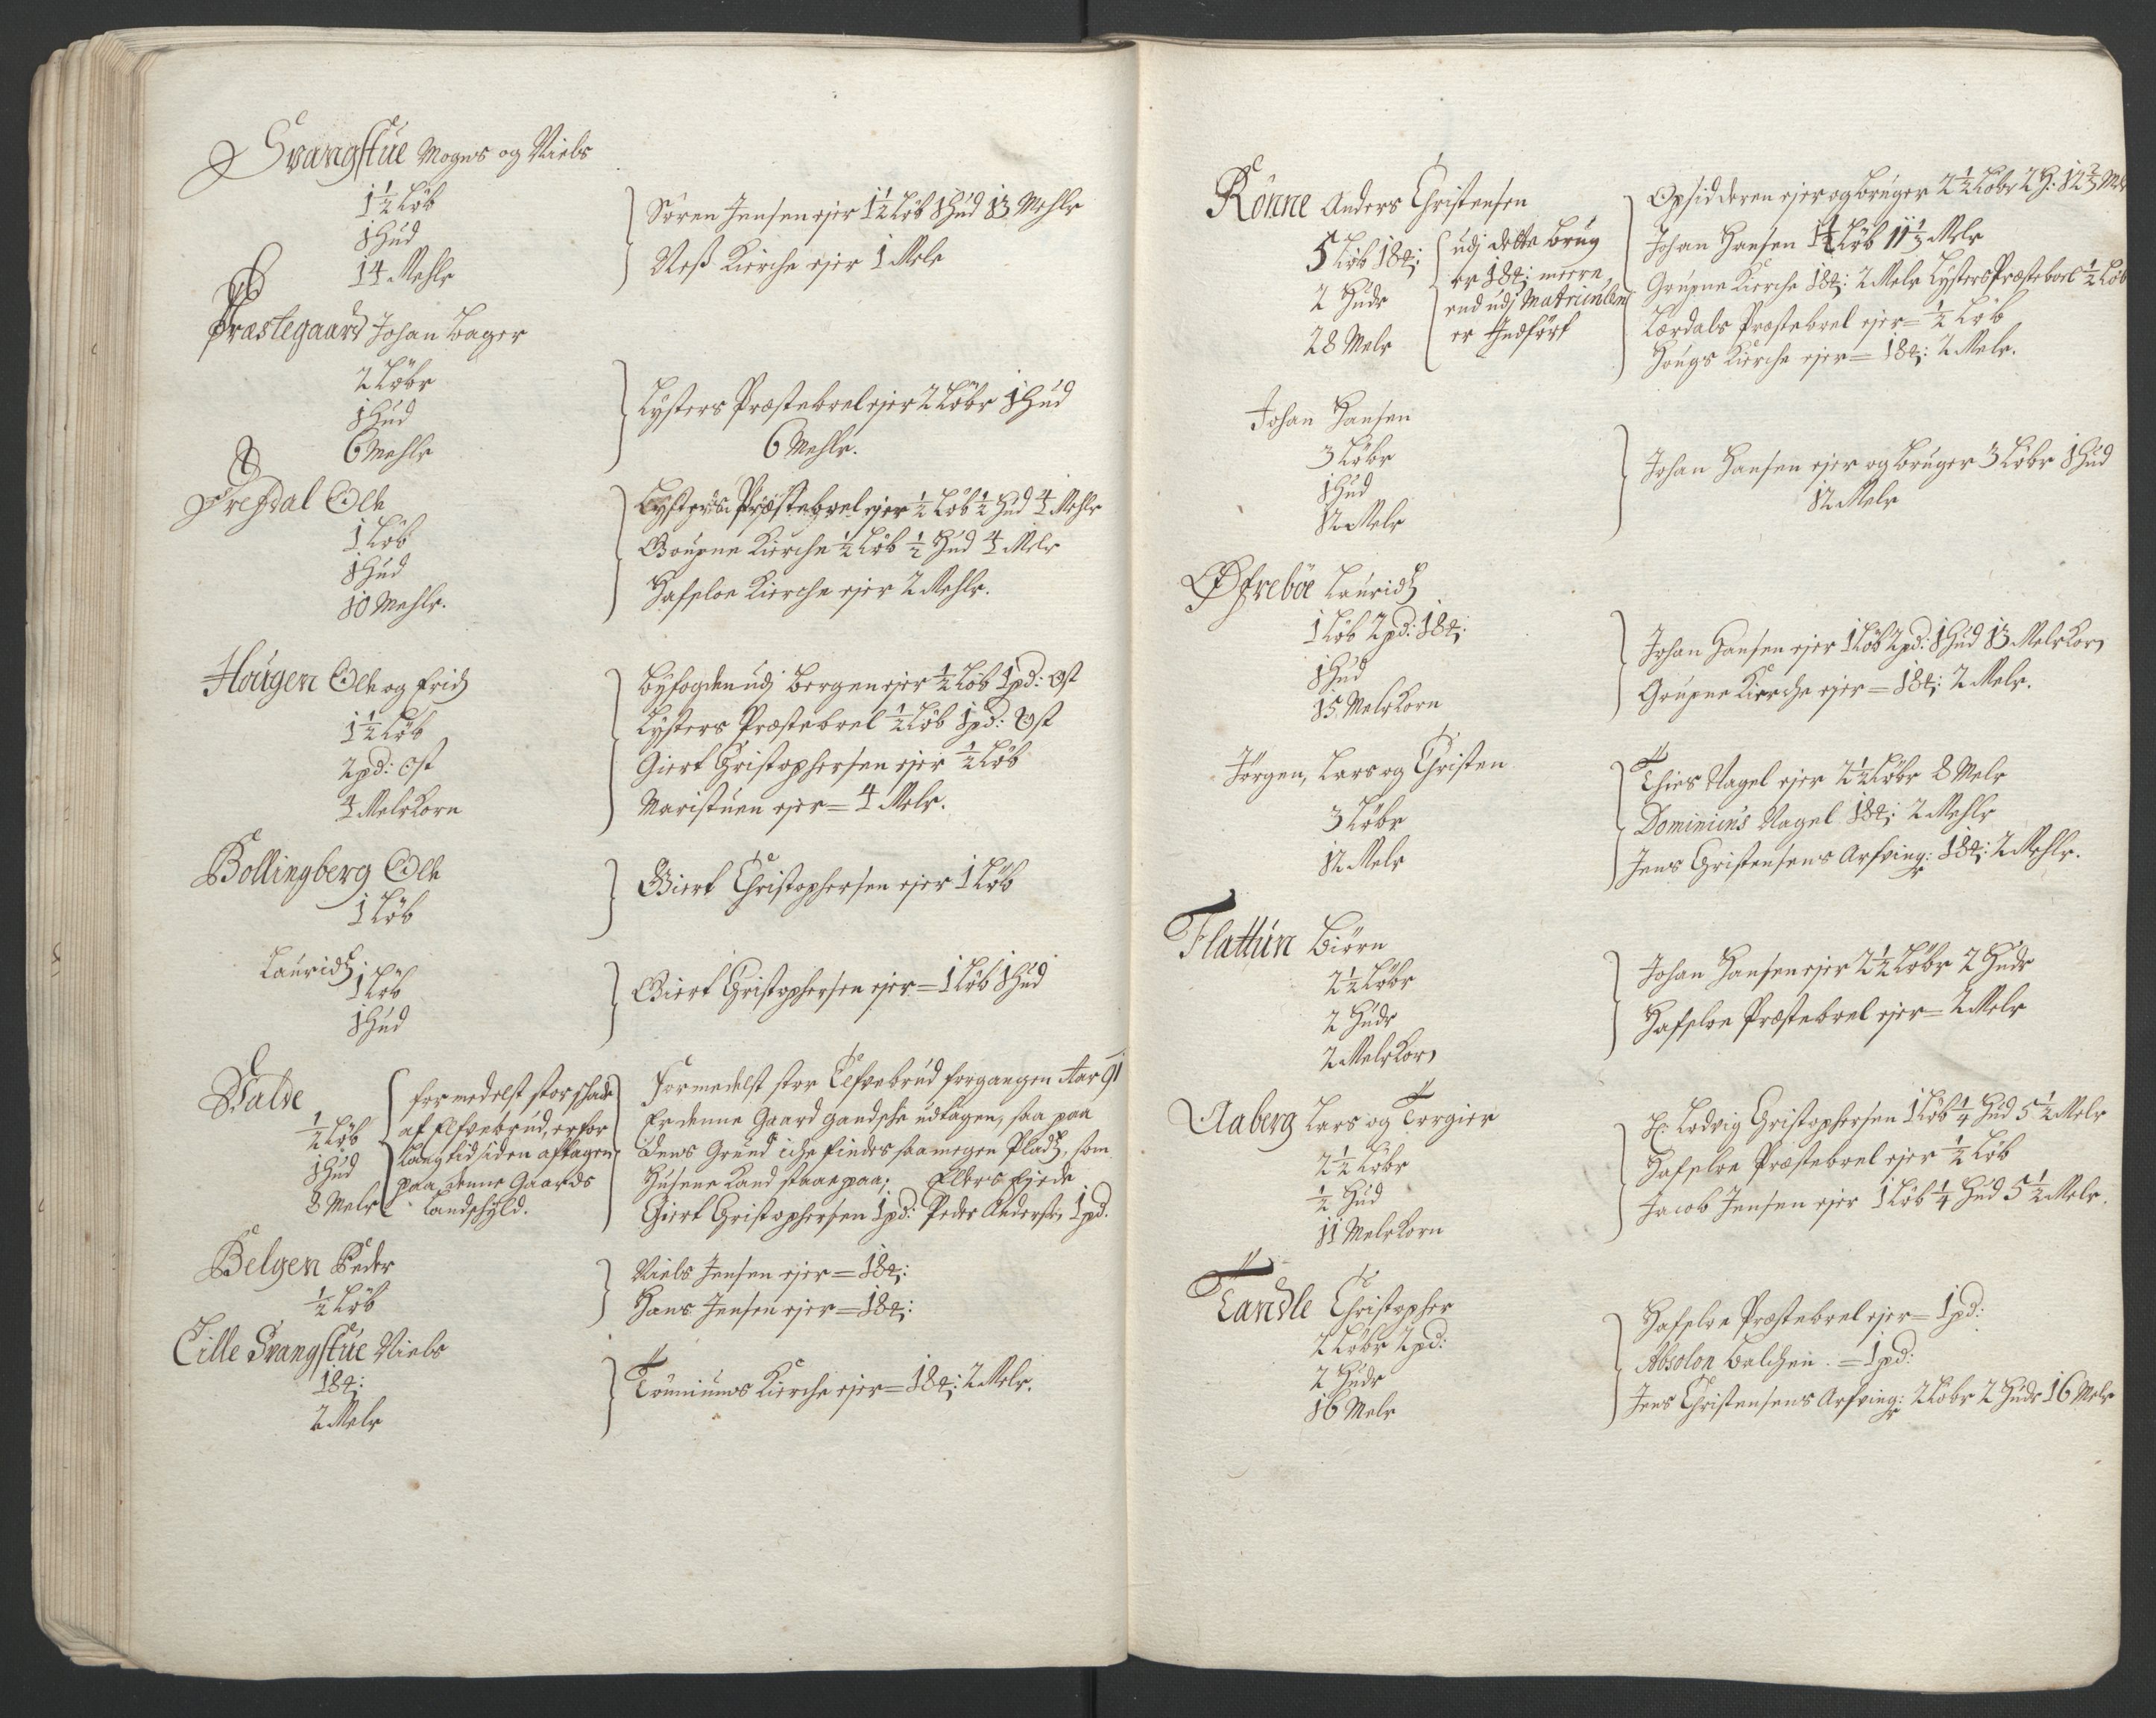 Svangstue Mogens og Niels
1½ Løb
1 Hud
14 Mehle
Søren Jensen ejer 1½ Løb 1 Hud 13 Mehle
Neß Kirche ejer 1 Mele
Præstegaard Johan Bager
2 Løber
1 Hud
6 Mehle
Lysters Præstebrel ejer 2 Løber 1 Hud
6 Mehle.
Fresdal Ole
1 Løb
1 Hud
10 Mehle.
Lysters Præstebrel ejer ½ Løb ½ Hud 4 Mehle
Goupne Kierche ½ Løb ½ Hud 4 Mele
Hafsloe Kierche ejer 2 Mehle.
Hougen Ole og Erich
1½ Løb
2 pd: Ost
4 Mele Korn
Byfogden udj Bergen ejer ½ Løb 1 pd: Ost
Lysters Præstebrel ½ Løb 1 pd: Ost
Giert Christophersen ejer ½ Løb
Maristuen ejer = 4 Mele.
Bollingberg Ole
1 Løb
Giert Christophersen ejer 1 Løb
Lauridz
1 Løb
1 Hud
Giert Christophersen ejer = 1 Løb 1 Hud
Dalde
½ Løb
1 Hud
8 Mele
formedelst stor schade
af Elfvebrud, er for
lang tid siden aftagen
paa denne Gaards
Landschyld.
Formedelst stor Elfvebrud forgangen Aar 91
Er denne Gaard gandsche udtagen, saa paa
dens Grund iche findes saa megen Pladz, som
Husene Kand staae paa; Ellers Ejede
Giert Christophersen 1 pd: Peder Anders: 1 pd.
Belgen Peder
½ Løb
Niels Jensen ejer = 18 ℔:
Hans Jensen ejer = 18 ℔:
Lille Svangstue Niels
18 ℔:
2 Mele
Kierche ejer = 18 ℔: 2 Mele.
Rönne Anders Christensen
5 Løb 18 ℔;
2 Huder
28 Mele
udj dette brug
er 18 ℔; meere
end udj Matriculen
er Indført
Opsidderen ejer og bruger 2½ Løber 2 H: 12⅔ Mel
Johan Hansen 1½ Løb 11⅓ Mele
Goupne Kierche 18 ℔: 2 Mele Lysters Præstebol ½ Løb
Lærdals Præstebrel ejer = ½ Løb
Hougs Kierche ejer = 18 ℔: 2 Mele.
Johan Hansen
3 Løber
1 Hud
12 Mele
Johan Hansen ejer og bruger 3 Løber 1 Hud
12 Mele
Øfrebøe Lauridz
1 Løb 2 pd: 18 ℔:
1 Hud
15 Mele Korn
Johan Hansen ejer 1 Løb 2 pd: 1 Hud 13 Mele Korn
Goupne Kierche ejer = 18 ℔: 2 Mele.
Jørgen, Lars og Christen
3 Løber
12 Mele
Thies Nagel ejer 2½ Løber 8 Mele
Dominicus Nagel 18 ℔; 2 Mehle
Jens Christensens Arfving: 18 ℔: 2 Mehle.
Flattun Biörn
2½ Løber
2 Huder
2 Mele Korn
Johan Hansen ejer 2½ Løber 2 Huder
Hafsloe Præstebrel ejer = 2 Mele
Aaberg Lars og Torgier
2½ Løber
½ Hud
11 Mele Korn
Hr Lodvig Christophersen 1 Løb ¼ Hud 5½ Mele
Hafsloe Præstebrel ejer ½ Løb
Jacob Jensen ejer 1 Løb ¼ Hud 5½ Mele.
Tandle Christopher
2 Løber 2 pd:
2 Huder
16 Mele
Hafsloe Præstebrel ejer = 1 pd:
Absolon Balchen. = 1 pd:
Jens Christensens Arfving: 2 Løber 2 Huder 16 Mele